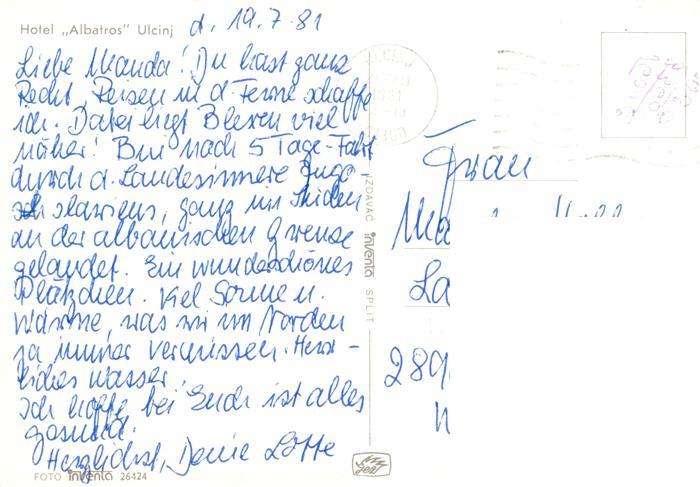 Hotel „Albatros" Ulcinj
d. 19.7.81
Liebe Wanda! Du hast ganz
Recht, Reisen in d Ferne schaffe
ich. Dabei liegt Blexen viel
näher! Bin nach 5 Tage-Fahrt
durch d. Landesinnere Jugo
slawiens, ganz im Süden
an der albanischen Grenze
gelandet. Ein wunderschönes
Plätzchen. Viel Sonne u.
Wärme, was wir im Norden
ja immer vermissen. Herr-
liches Wasser!
Ich hoffe bei Euch ist alles
gesund.
Herzlichst, Deine Lotte
FOTO inventa 26424
IZDAVAČ inventa SPLIT
Frau
Wa
La
289